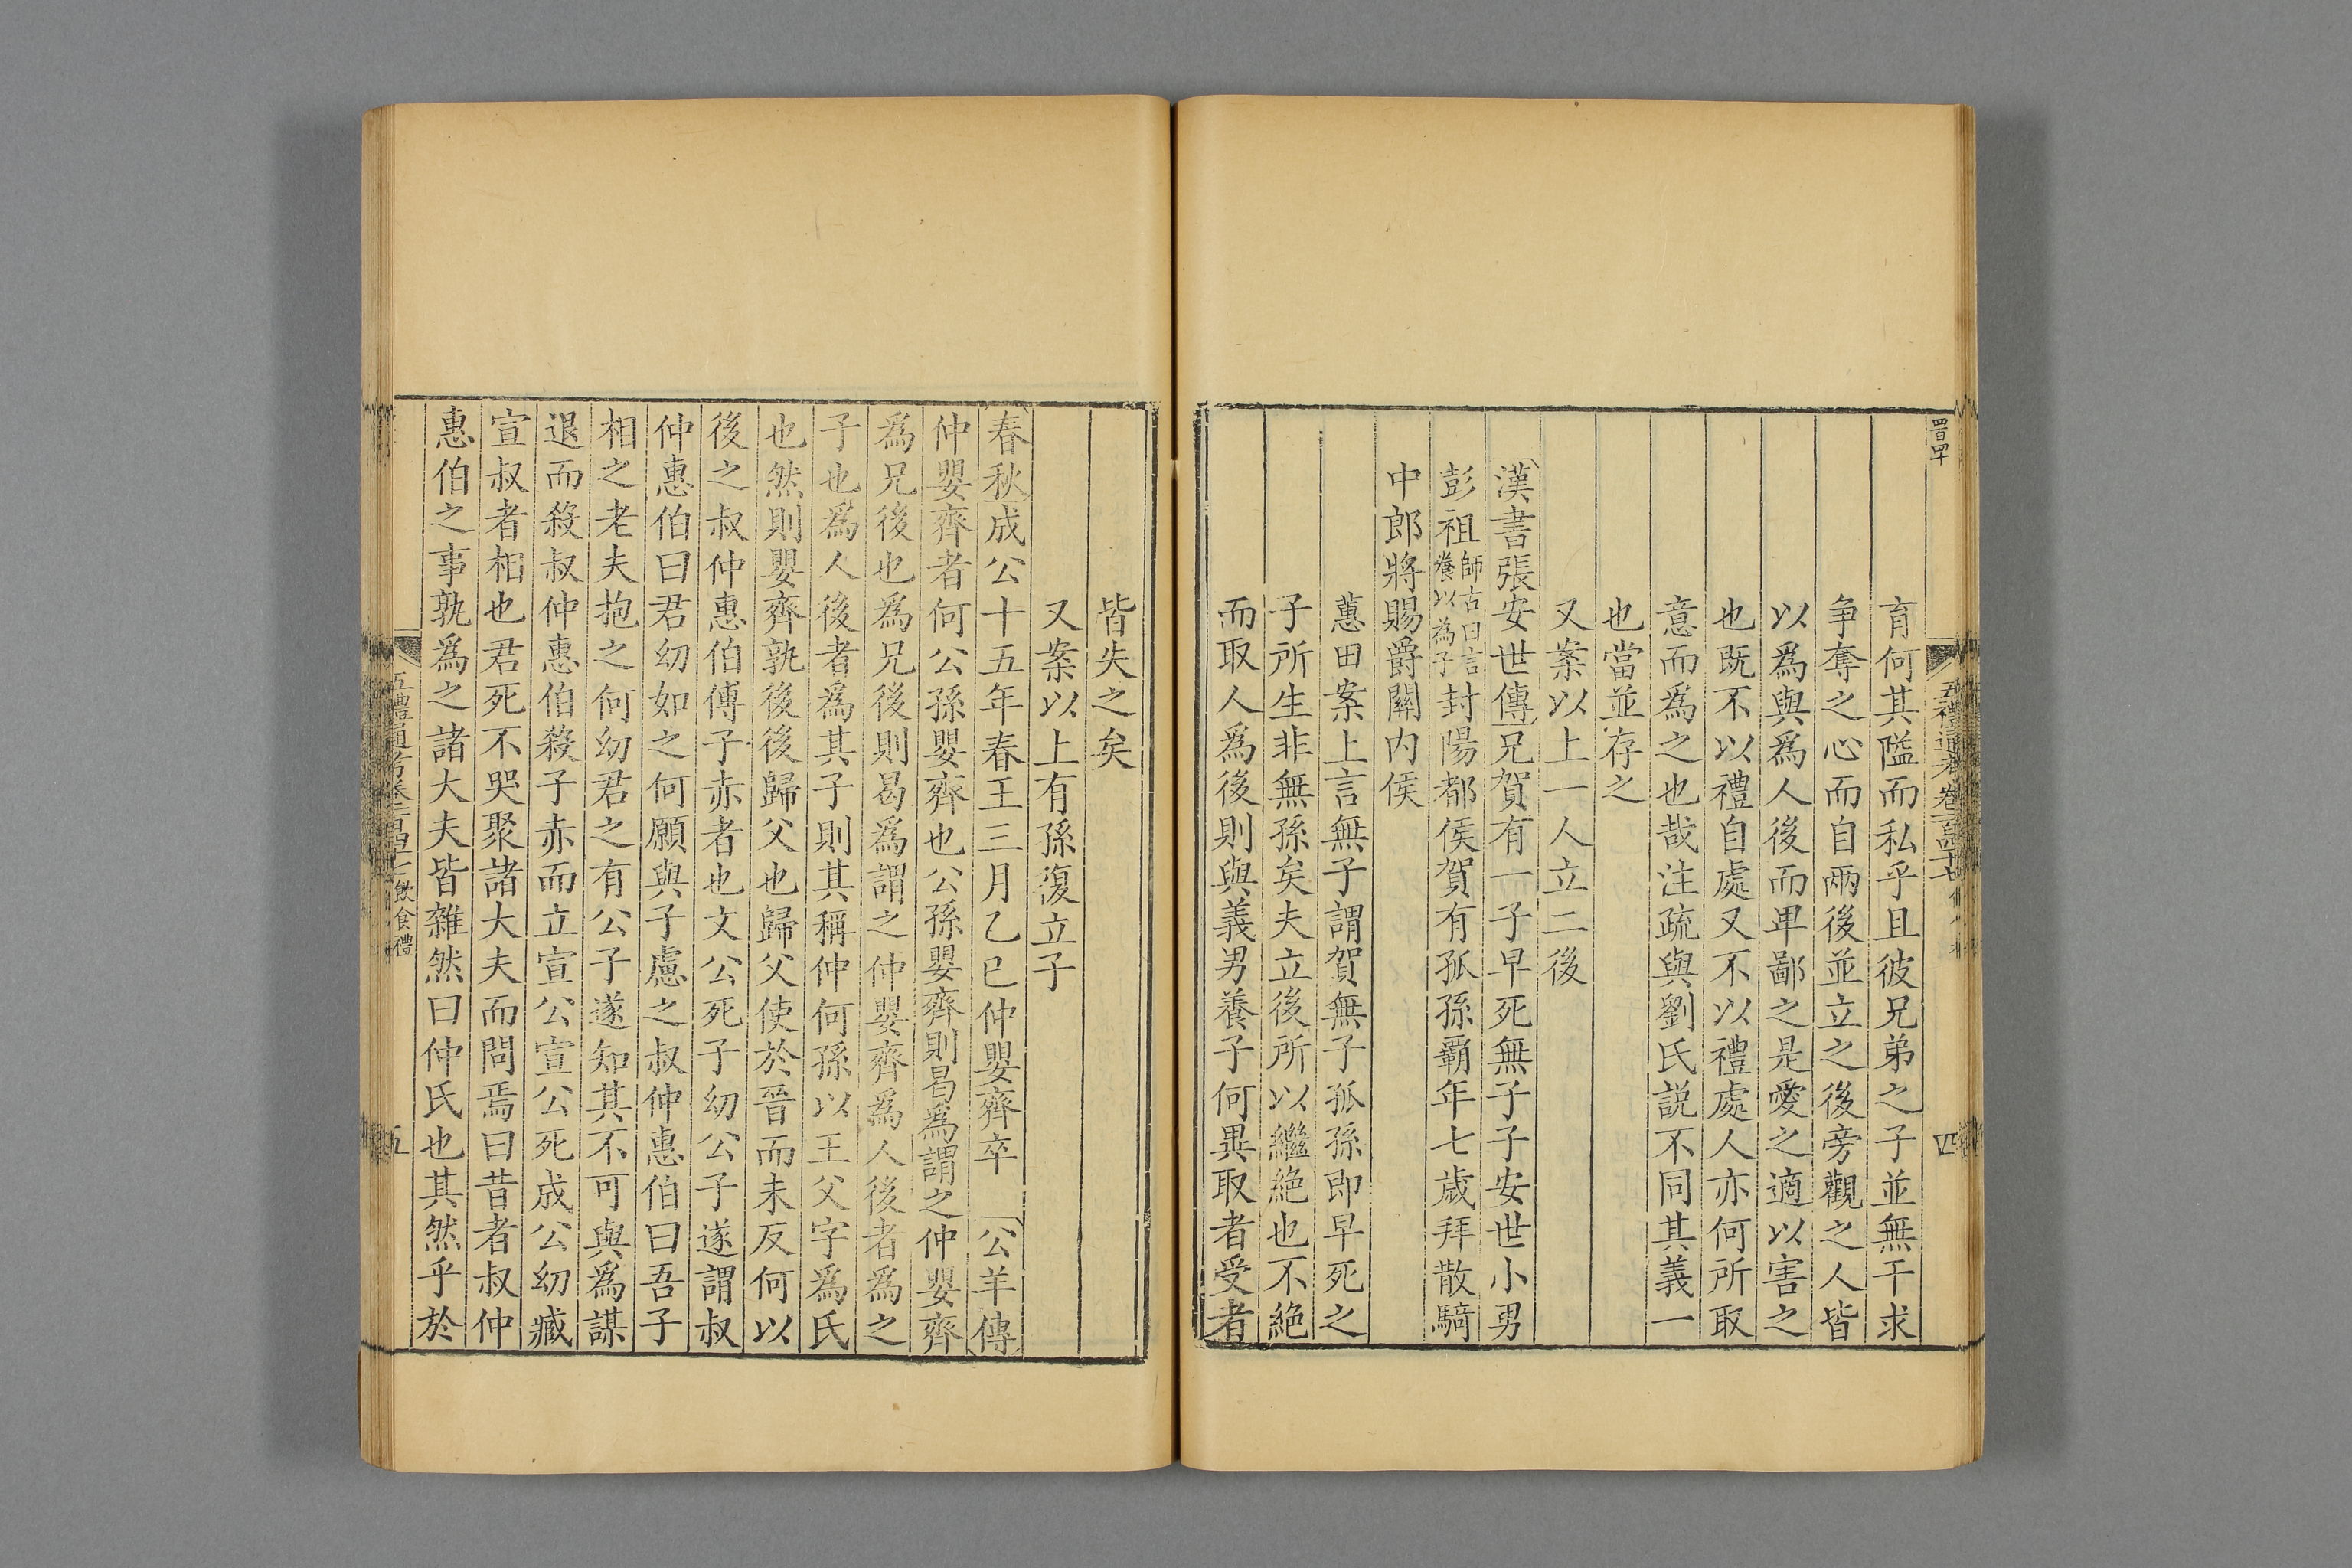 育何其隘而私乎且彼兄弟之子並無干求
争奪之心而自兩後並立之後旁觀之人皆
以爲與爲人後而卑鄙之是愛之適以害之
也既不以禮自處又不以禮處人亦何所取
意而爲之也哉注疏與劉氏説不同其義一
也當並存之
又案以上一人立二後
漢書張安世傳兄賀有一子早死無子子安世小男
彭祖師古曰言養以為子封陽都侯賀有孤孫霸年七歲拜散騎
中郎將賜爵關内侯
蕙田案上言無子謂賀無子孤孫即早死之
子所生非無孫矣夫立後所以繼絶也不絶
而取人爲後則與義男養子何異取者受者
皆失之矣
又案以上有孫復立子
春秋成公十五年春王三月乙巳仲嬰齊卒 公羊傳
仲嬰齊者何公孫嬰齊也公孫嬰齊則曷爲謂之仲嬰齊
爲兄後也爲兄後則曷爲謂之仲嬰齊爲人後者爲之
子也爲人後者爲其子則其稱仲何孫以王父字爲氏
也然則嬰齊孰後後歸父也歸父使於晉而未反何以
後之叔仲惠伯傅子赤者也文公死子幼公子遂謂叔
仲惠伯曰君幼如之何願與子慮之叔仲惠伯曰吾子
相之老夫抱之何幼君之有公子遂知其不可與爲謀
退而殺叔仲惠伯殺子赤而立宣公宣公死成公幼臧
宣叔者相也君死不哭聚諸大夫而問焉曰昔者叔仲
惠伯之事孰爲之諸大夫皆雜然曰仲氏也其然乎於